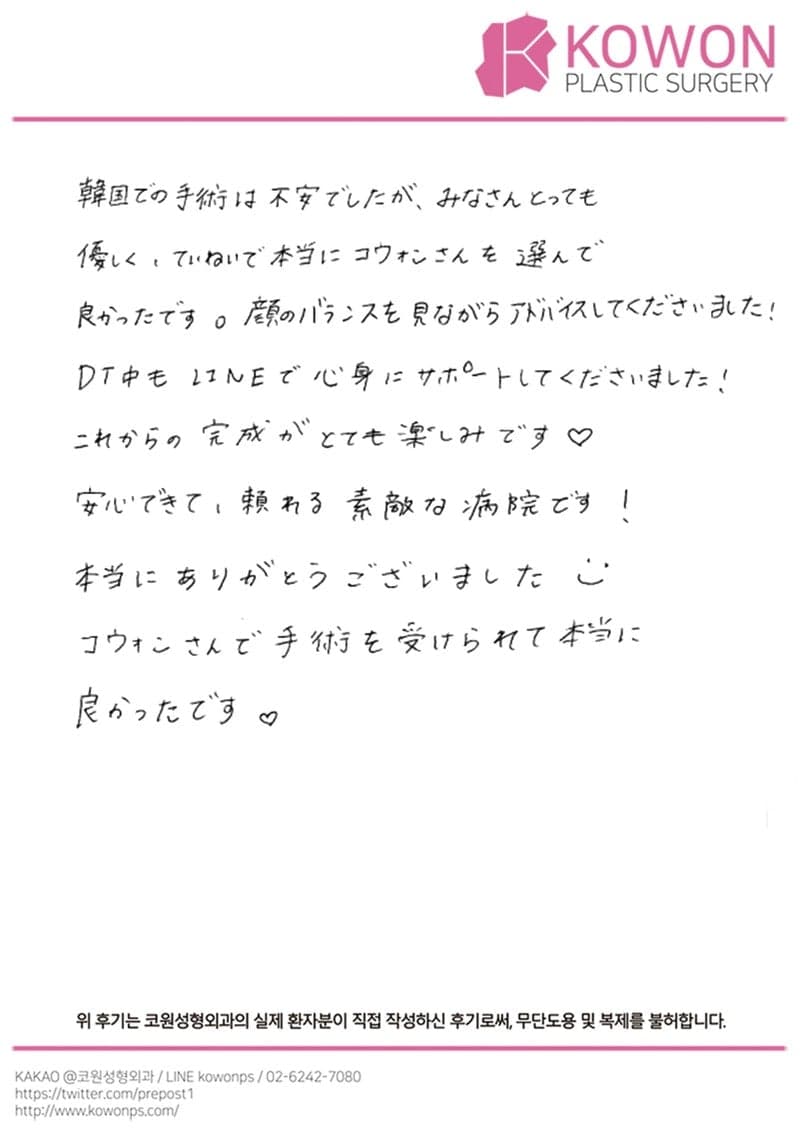 KOWON
PLASTIC SURGERY
韓国での手術は不安でしたが、みなさんとっても
優しく、ていねいで本当にコウォンさんを選んで
良かったです。顔のバランスを見ながらアドバイスしてくださいました!
DT中もLINEで心身にサポートしてくださいました!
これからの完成がとても楽しみです♡
安心できて、頼れる素敵な病院です!
本当にありがとうございました
コウォンさんで手術を受けられて本当に
良かったです♡
위 후기는 코원성형외과의 실제 환자분이 직접 작성하신 후기로써, 무단도용 및 복제를 불허합니다.
KAKAO @코원성형외과 / LINE kowonps / 02-6242-7080
https://twitter.com/prepost1
http://www.kowonps.com/